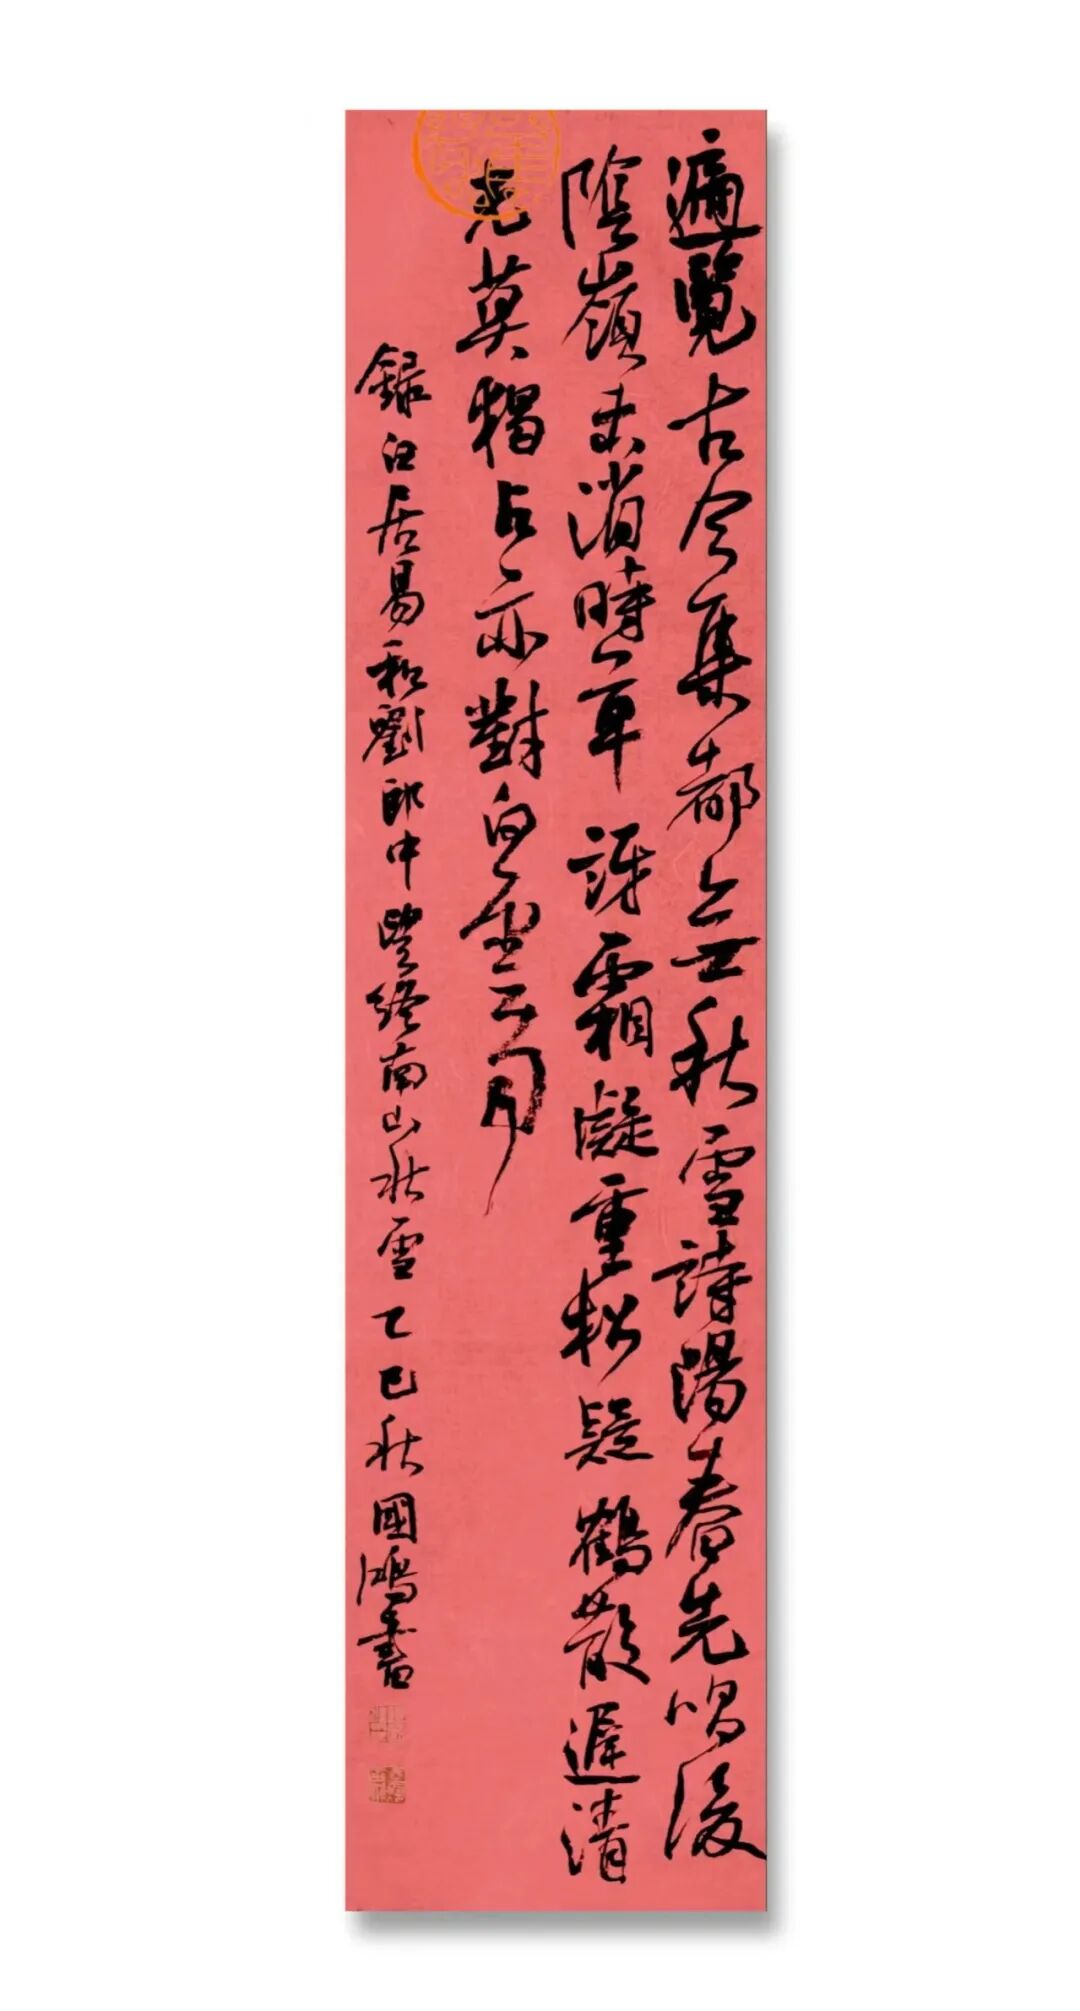 遍覽古今集都無秋雪詩陽春先唱後
陰嶺未消時草訝霜凝重松疑鶴散遲清
光莫獨占亦對白雲司
錄白居易和劉郎中望終南山秋雪乙巳秋國鴻書